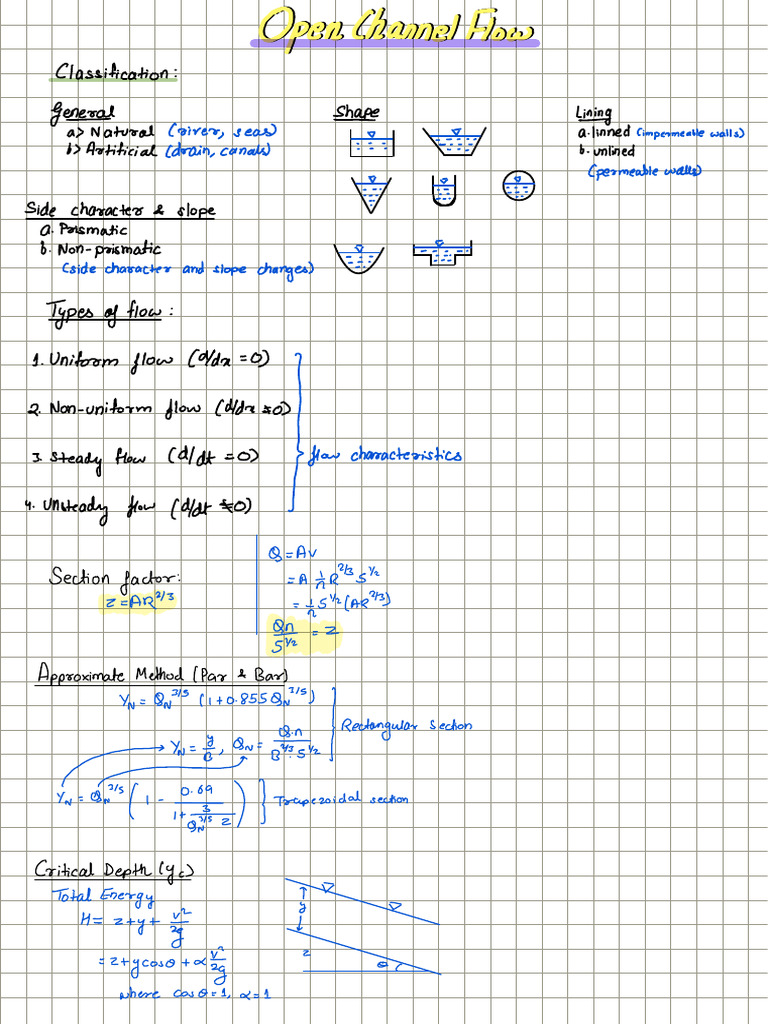 Open Channel Flow
Classification:
General
a> Natural (river, seas)
b> Artificial (drain, canals)
Shape
Lining
a. linned (impermeable walls)
b. unlined
(permeable walls)
Side character & slope
a. Prismatic
b. Non-prismatic
(side character and slope changes)
Types of flow:
1. Uniform flow (d/dx = 0)
2. Non-uniform flow (d/dx ≠ 0)
3. Steady flow (d/dt = 0)
4. Unsteady flow (d/dt ≠ 0)
flow characteristics
Section factor:
Z = AR^2/3
Q = AV
= A 1/n R^2/3 S^1/2
= 1/n S^1/2 (AR^2/3)
Qn/S^1/2 = Z
Approximate Method (Par & Bar)
Y_N = Q_N^3/5 (1+0.855Q_N^3/5)
Y_N = y/B, Q_N = Q.n/B^8/3.S^1/2
Rectangular section
Y_N = Q_N^3/5 (1 - 0.69/(1+3/(Q_N^3/5 Z)))
Trapezoidal section
Critical Depth (y_c)
Total Energy
H = z+y+ v^2/2g
= z+ycosθ+α v^2/2g
where cosθ=1, α=1
y
z
θ